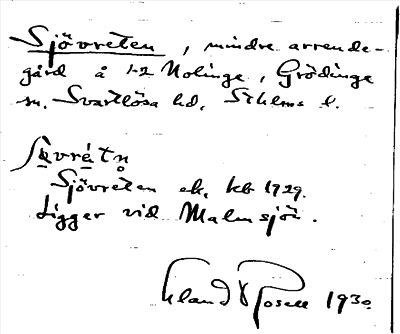 Sjövreten, mindre arrende-
gård å 1-2 Nolinge, Grödinge
sn. Svartlösa hd, Sthlms l.
Sjövreten ek. kb 1929.
Ligger vid Malmsjön.
Erland Rosell 1930